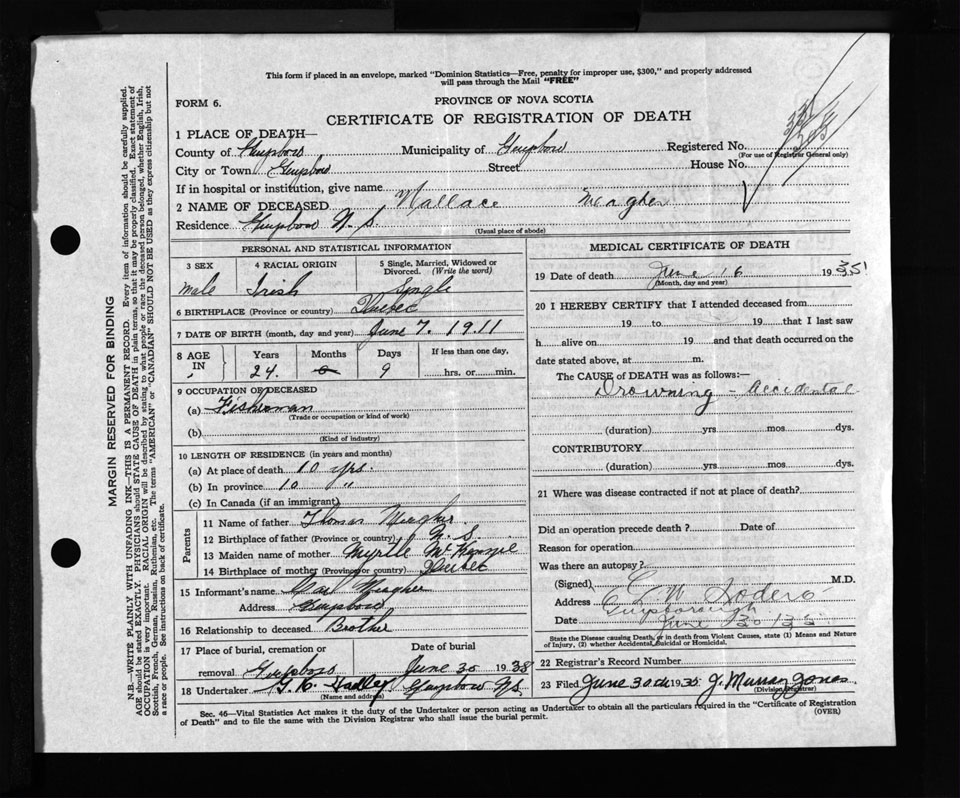 This form if placed in an envelope, marked "Dominion Statistics—Free, penalty for improper use, $300," and properly addressed
will pass through the Mail "FREE"
FORM 6.
PROVINCE OF NOVA SCOTIA
CERTIFICATE OF REGISTRATION OF DEATH
1 PLACE OF DEATH—
County of Guysboro Municipality of Guysboro Registered No.
(For use of Registrar General only)
City or Town Guysboro Street House No.
If in hospital or institution, give name
2 NAME OF DECEASED Wallace Meagher
Residence Guysboro N. S.
(Usual place of abode)
PERSONAL AND STATISTICAL INFORMATION
3 SEX Male
4 RACIAL ORIGIN Irish
5 Single, Married, Widowed or Divorced. (Write the word) Single
6 BIRTHPLACE (Province or country) Quebec
7 DATE OF BIRTH (month, day and year) June 7. 1911
8 AGE IN Years 24. Months 0 Days 9 If less than one day, hrs. or min.
9 OCCUPATION OF DECEASED
(a) Fisherman
(Trade or occupation or kind of work)
(b)
(Kind of industry)
10 LENGTH OF RESIDENCE (in years and months)
(a) At place of death 10 yrs.
(b) In province 10 "
(c) In Canada (if an immigrant)
Parents
11 Name of father Thomas Meagher
12 Birthplace of father (Province or country) N. S.
13 Maiden name of mother Myrtle McKenzie
14 Birthplace of mother (Province or country) Quebec
15 Informant's name Carl Meagher
Address Guysboro
16 Relationship to deceased Brother
17 Place of burial, cremation or removal Guysboro Date of burial June 30 1938
18 Undertaker G. K. Hadley Guysboro N.S.
(Name and address)
MEDICAL CERTIFICATE OF DEATH
19 Date of death June 16 1935
(Month, day and year)
20 I HEREBY CERTIFY that I attended deceased from
19 to 19 that I last saw
h alive on 19 and that death occurred on the
date stated above, at m.
The CAUSE of DEATH was as follows:—
Drowning - Accidental
(duration) yrs mos dys.
CONTRIBUTORY
(duration) yrs mos dys.
21 Where was disease contracted if not at place of death?
Did an operation precede death? Date of
Reason for operation
Was there an autopsy?
(Signed) C W Sodero M.D.
Address Guysborough
Date June 30/35
State the Disease causing Death, or in death from Violent Causes, state (1) Means and Nature
of Injury, (2) whether Accidental, Suicidal or Homicidal.
22 Registrar's Record Number
23 Filed June 30th 1935 J. Murray Jones
(Division Registrar)
Sec. 46—Vital Statistics Act makes it the duty of the Undertaker or person acting as Undertaker to obtain all the particulars required in the "Certificate of Registration
of Death" and to file the same with the Division Registrar who shall issue the burial permit.
(OVER)
MARGIN RESERVED FOR BINDING
N.B.—WRITE PLAINLY WITH UNFADING INK—THIS IS A PERMANENT RECORD. Every item of information should be carefully supplied.
AGE should be stated EXACTLY. PHYSICIANS should STATE CAUSE OF DEATH in plain terms, so that it may be properly classified. Exact statement of
OCCUPATION is very important. RACIAL ORIGIN will be described by stating to what people or race the deceased person belonged, whether English, Irish,
Scottish, French, German, Russian, Ruthenian, etc. The terms "AMERICAN" or "CANADIAN" SHOULD NOT BE USED as they express citizenship but not
a race or people. See instructions on back of certificate.